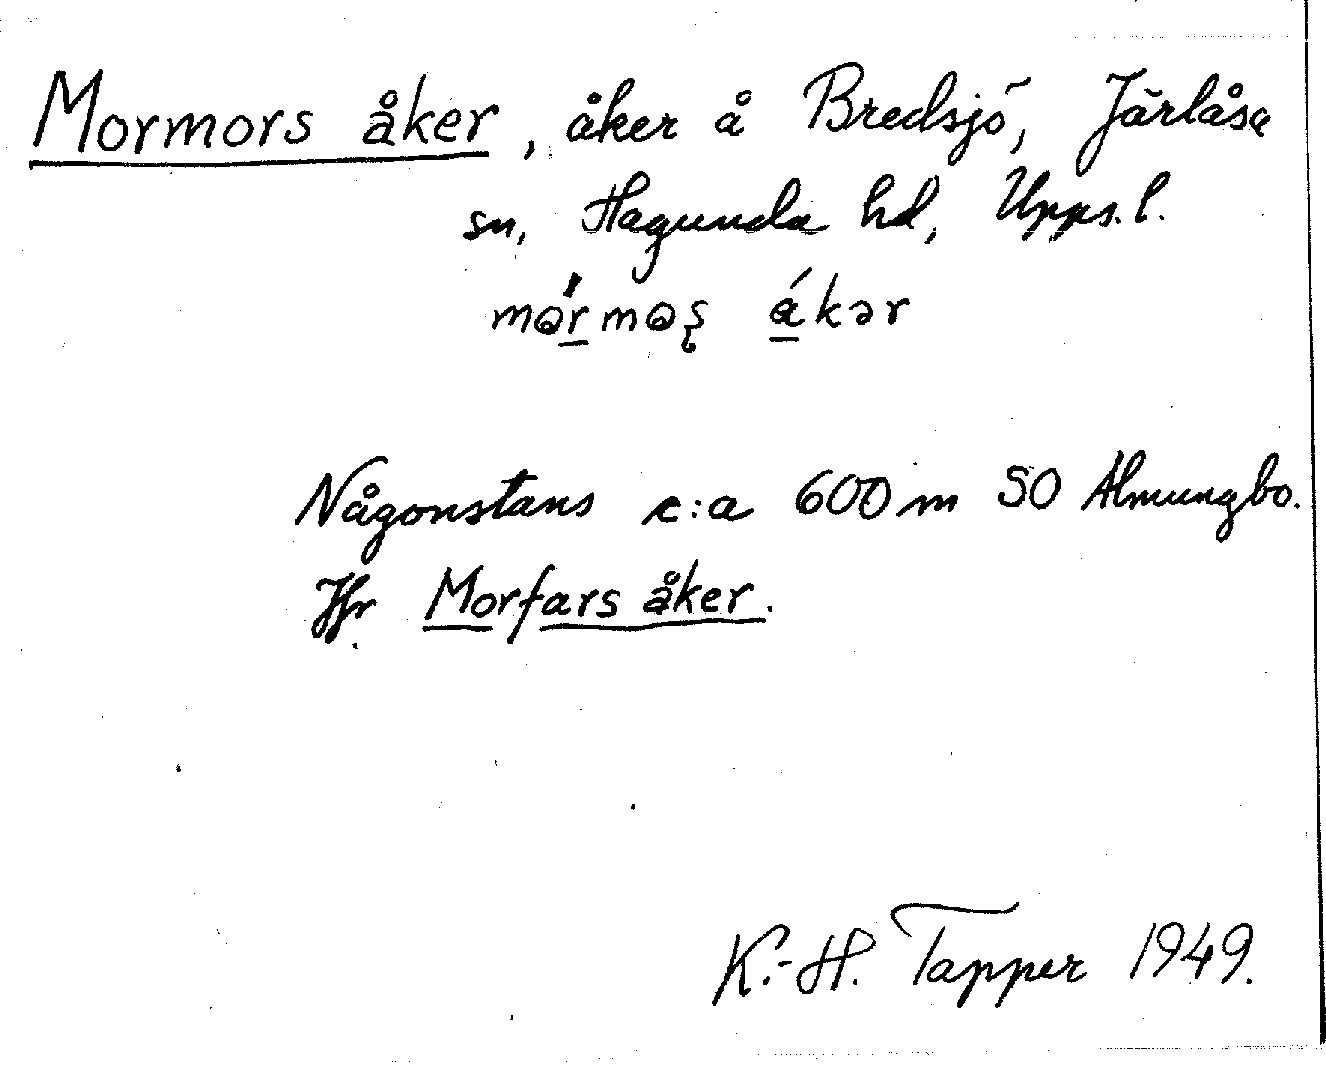 Mormors åker, åker å Bredsjö, Järlåsa
sn, Hagunda hd, Upps.l.
Någonstans c:a 600 m SO Älmungbo.
Jfr Morfars åker.
K.-H. Tapper 1949.